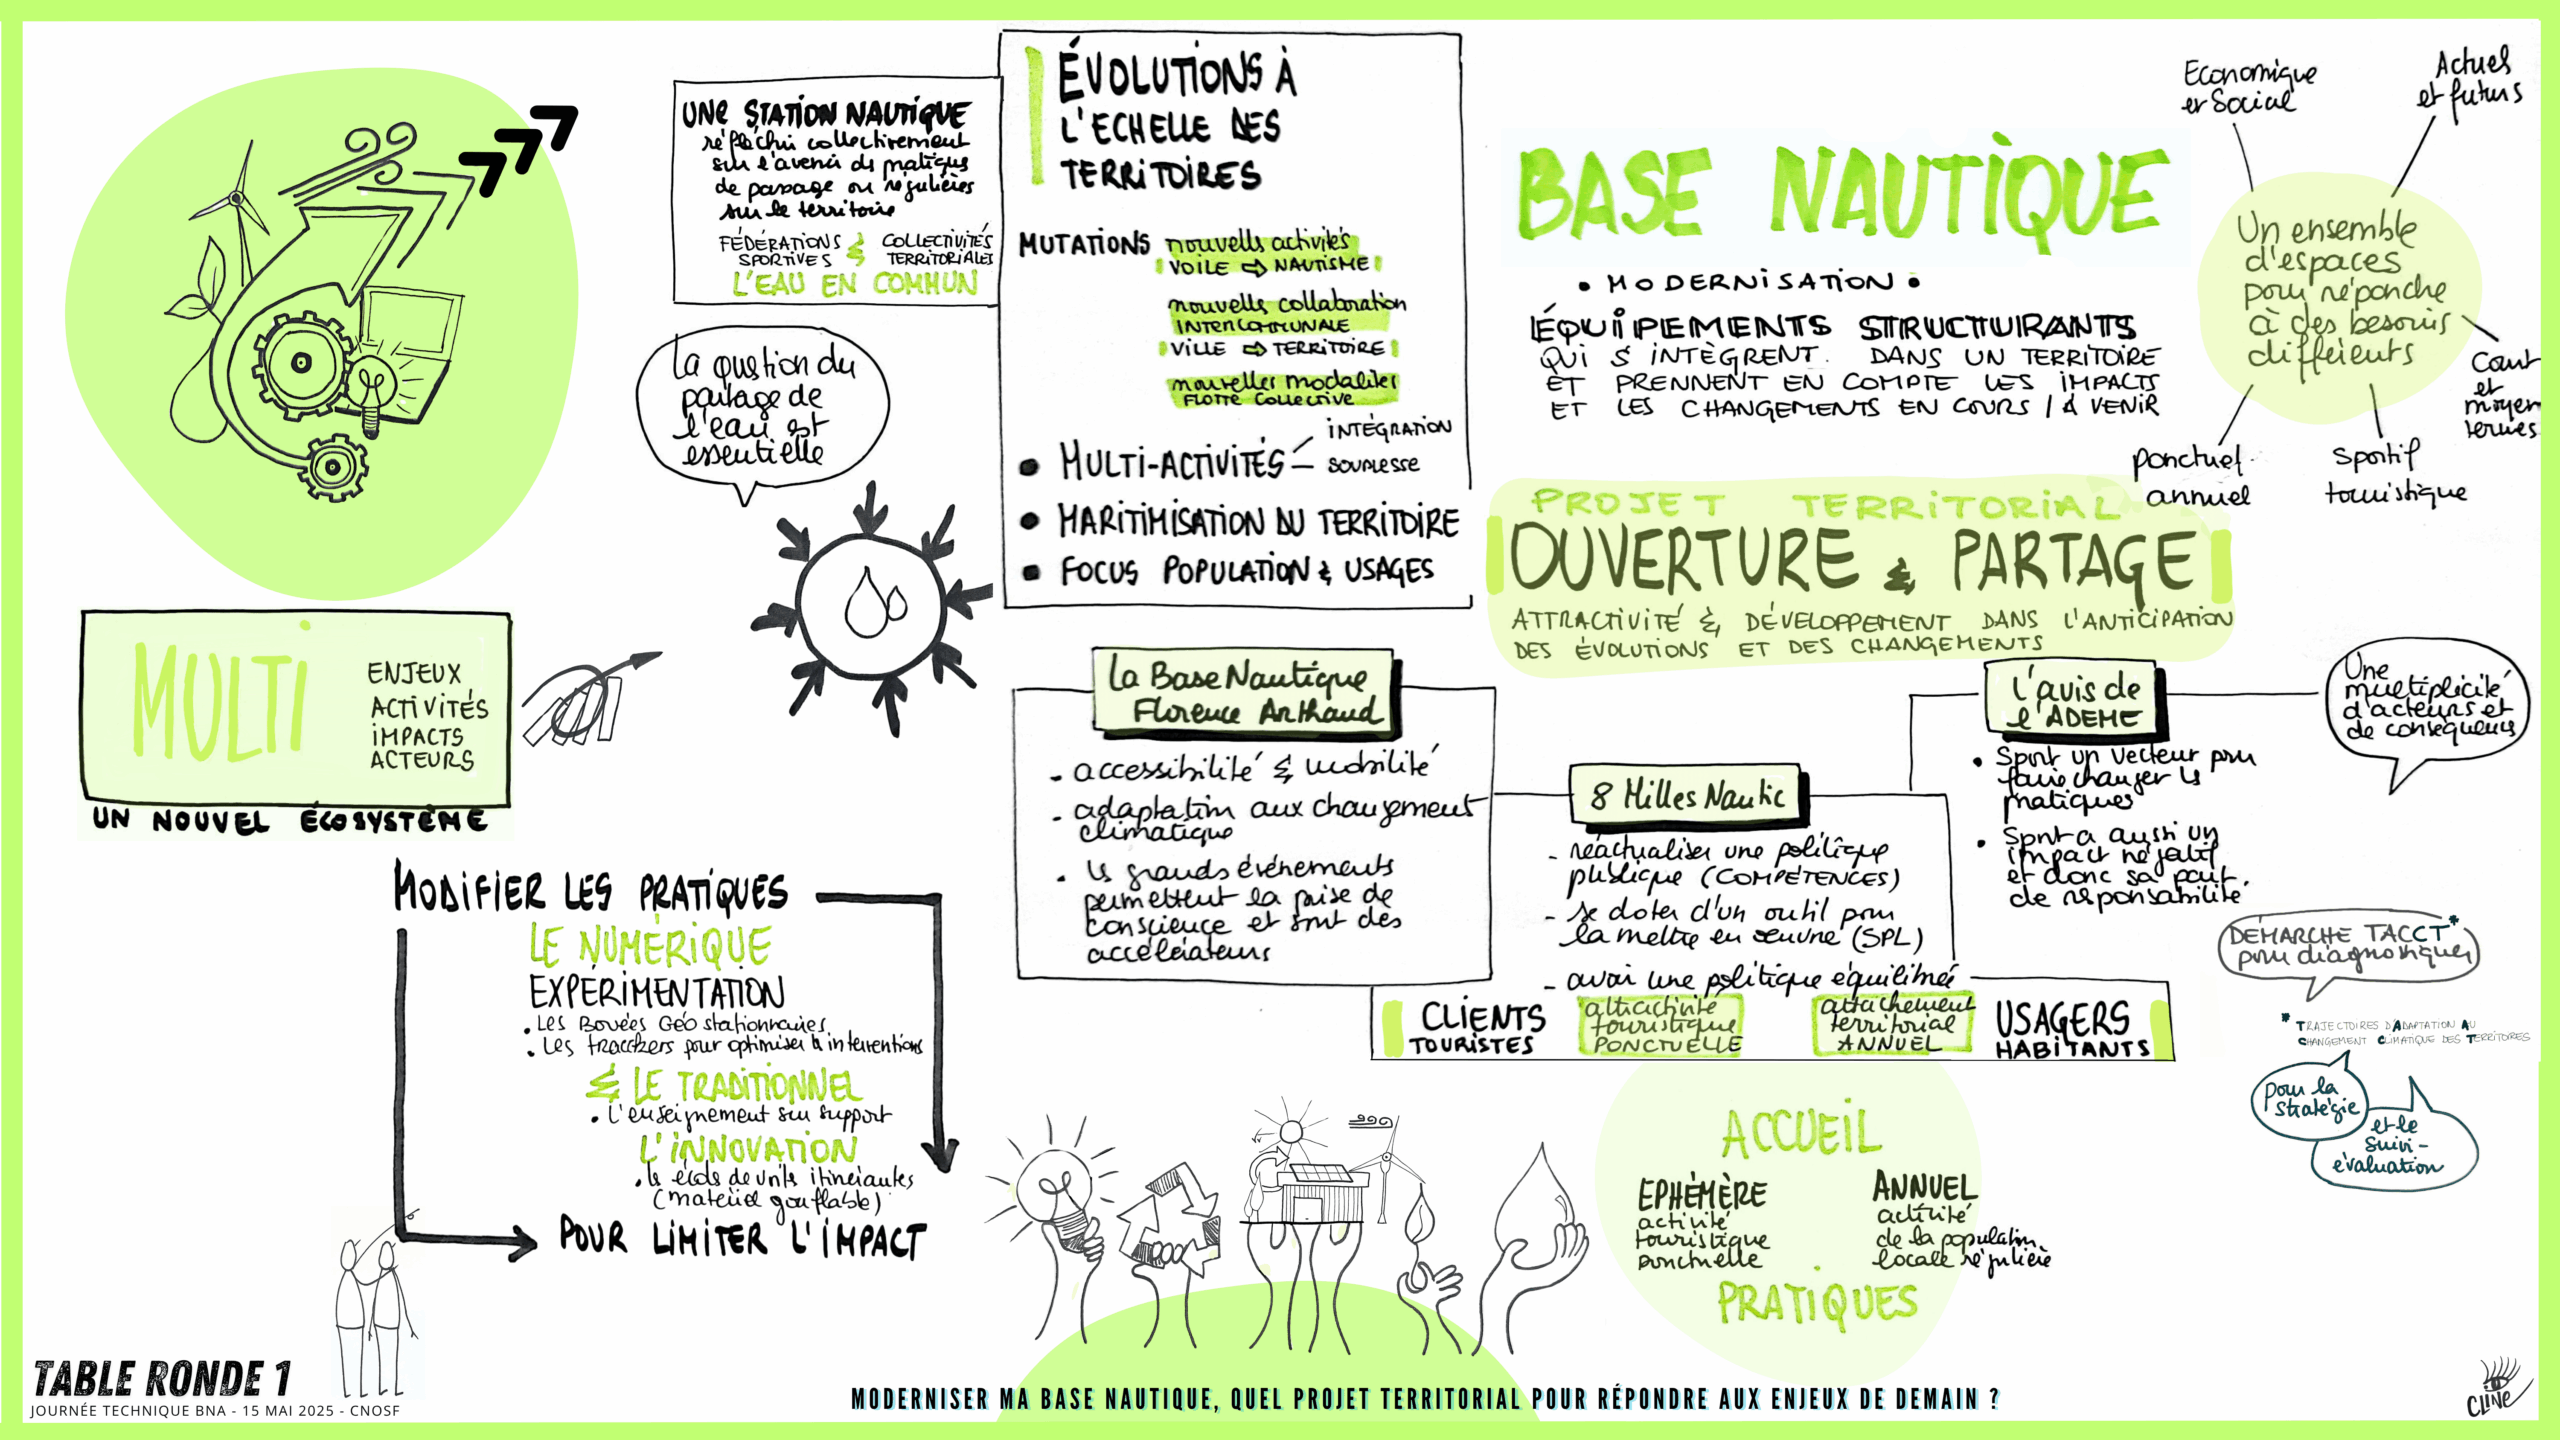 UNE STATION NAUTIQUE
réfléchir collectivement
sur l'avenir des pratiques
de passage ou régulières
sur le territoire
FÉDÉRATIONS & COLLECTIVITÉS
SPORTIVES TERRITORIALES
L'EAU EN COMMUN
La question du
partage de
l'eau est
essentielle
ÉVOLUTIONS À
L'ECHELLE DES
TERRITOIRES
MUTATIONS nouvelles activités
VOILE ⇨ NAUTISME
nouvelle collaboration
INTERCOMMUNALE
VILLE ⇨ TERRITOIRE
nouvelles modalités
FLOTTE COLLECTIVE
• MULTI-ACTIVITÉS – INTÉGRATION
SOUPLESSE
• MARITIMISATION DU TERRITOIRE
• FOCUS POPULATION & USAGES
BASE NAUTIQUE
• MODERNISATION •
ÉQUIPEMENTS STRUCTURANTS
QUI S'INTÈGRENT DANS UN TERRITOIRE
ET PRENNENT EN COMPTE LES IMPACTS
ET LES CHANGEMENTS EN COURS / À VENIR
Economique
et Social
Actuels
et futurs
Un ensemble
d'espaces
pour répondre
à des besoins
différents
Court
et
moyen
termes
ponctuel
annuel
Sportif
touristique
PROJET TERRITORIAL
OUVERTURE & PARTAGE
ATTRACTIVITÉ & DÉVELOPPEMENT DANS L'ANTICIPATION
DES ÉVOLUTIONS ET DES CHANGEMENTS
MULTI
ENJEUX
ACTIVITÉS
IMPACTS
ACTEURS
UN NOUVEL ÉCOSYSTÈME
MODIFIER LES PRATIQUES
LE NUMÉRIQUE
EXPÉRIMENTATION
• Les Bouées Géostationnaires
• Les tracckers pour optimiser les interventions
& LE TRADITIONNEL
• L'enseignement sur support
L'INNOVATION
• les écoles de voile itinérantes
(matériel gonflable)
POUR LIMITER L'IMPACT
La Base Nautique
Florence Arthaud
- accessibilité & mobilité
- adaptation aux changement
climatique
• les grands événements
permettent la prise de
conscience et sont des
accélérateurs
8 Milles Nautic
- réactualiser une politique
publique (COMPÉTENCES)
- se doter d'un outil pour
la mettre en œuvre (SPL)
- avoir une politique équilibrée
CLIENTS
TOURISTES
attractivité
touristique
PONCTUELLE
attachement
territorial
ANNUEL
USAGERS
HABITANTS
l'avis de
l'ADEME
• Sport un vecteur pour
faire changer les
pratiques
• Sport a aussi un
impact négatif
et donc sa part
de responsabilité
Une
multiplicité
d'acteurs et
de conséquences
DÉMARCHE TACCT*
pour diagnostiquer
* TRAJECTOIRES D'ADAPTATION AU
CHANGEMENT CLIMATIQUE DES TERRITOIRES
pour la
stratégie
et le
suivi-
évaluation
ACCUEIL
EPHÉMÈRE
activité
touristique
ponctuelle
ANNUEL
activité
de la population
locale régulière
PRATIQUES
TABLE RONDE 1
JOURNÉE TECHNIQUE BNA - 15 MAI 2025 - CNOSF
MODERNISER MA BASE NAUTIQUE, QUEL PROJET TERRITORIAL POUR RÉPONDRE AUX ENJEUX DE DEMAIN ?
CLINE